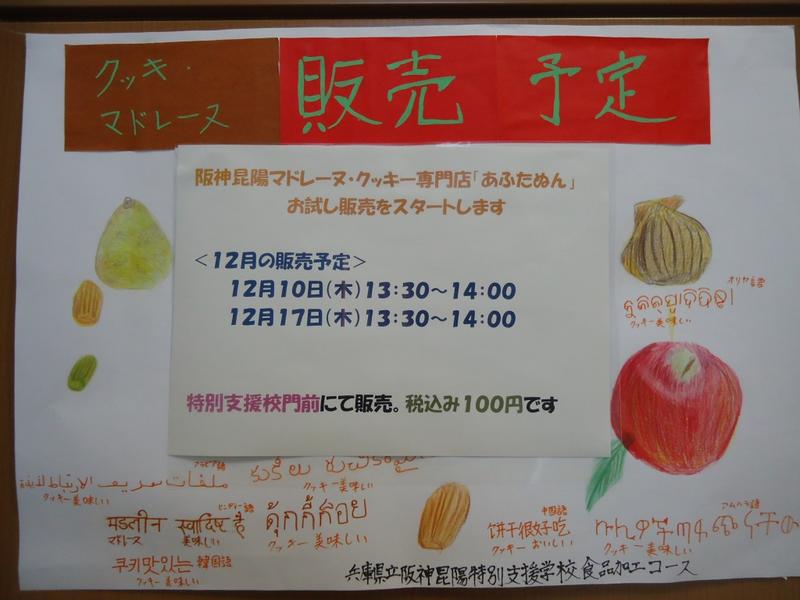 クッキ・
マドレーヌ
販売 予定
阪神昆陽マドレーヌ・クッキー専門店「あふたぬん」
お試し販売をスタートします
＜12月の販売予定＞
12月10日(木)13:30～14:00
12月17日(木)13:30～14:00
特別支援校門前にて販売。税込み100円です
オリヤ語
クッキー美味しい
アラビア語
ملفات تعريف الارتباط لذيذة
クッキー美味しい
クッキー美味しい
ヒンディー語
मडलीन स्वादिष्ट है
マドレーヌ 美味しい
คุ้กกี้อร่อย
クッキー 美味しい
中国語
饼干很好吃
クッキーおいしい
アムハラ語
クッキー美味しい
쿠키맛있는 韓国語
クッキー美味しい
兵庫県立阪神昆陽特別支援学校食品加工コース